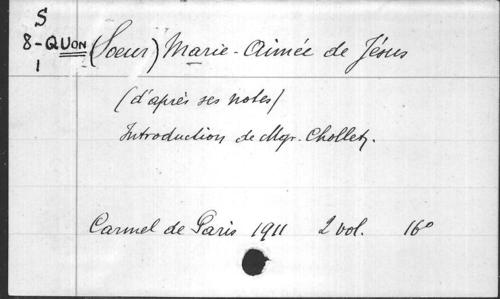 S
8-QUON (Soeur) Marie-Aimée de Jésus
1
(d'après ses notes)
Introduction de Mgr. Chollet.
Carmel de Paris 1911 2 vol. 16°